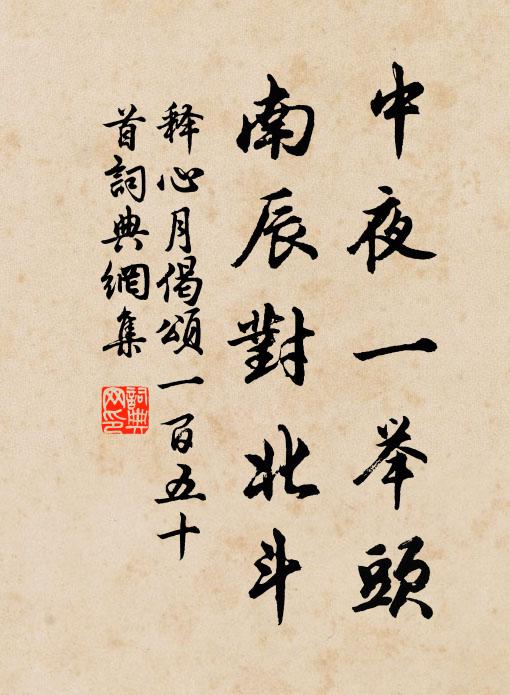 中夜一举頭
南辰對北斗
释心月偈頌一百五十
首詞典網集
詞典
网印